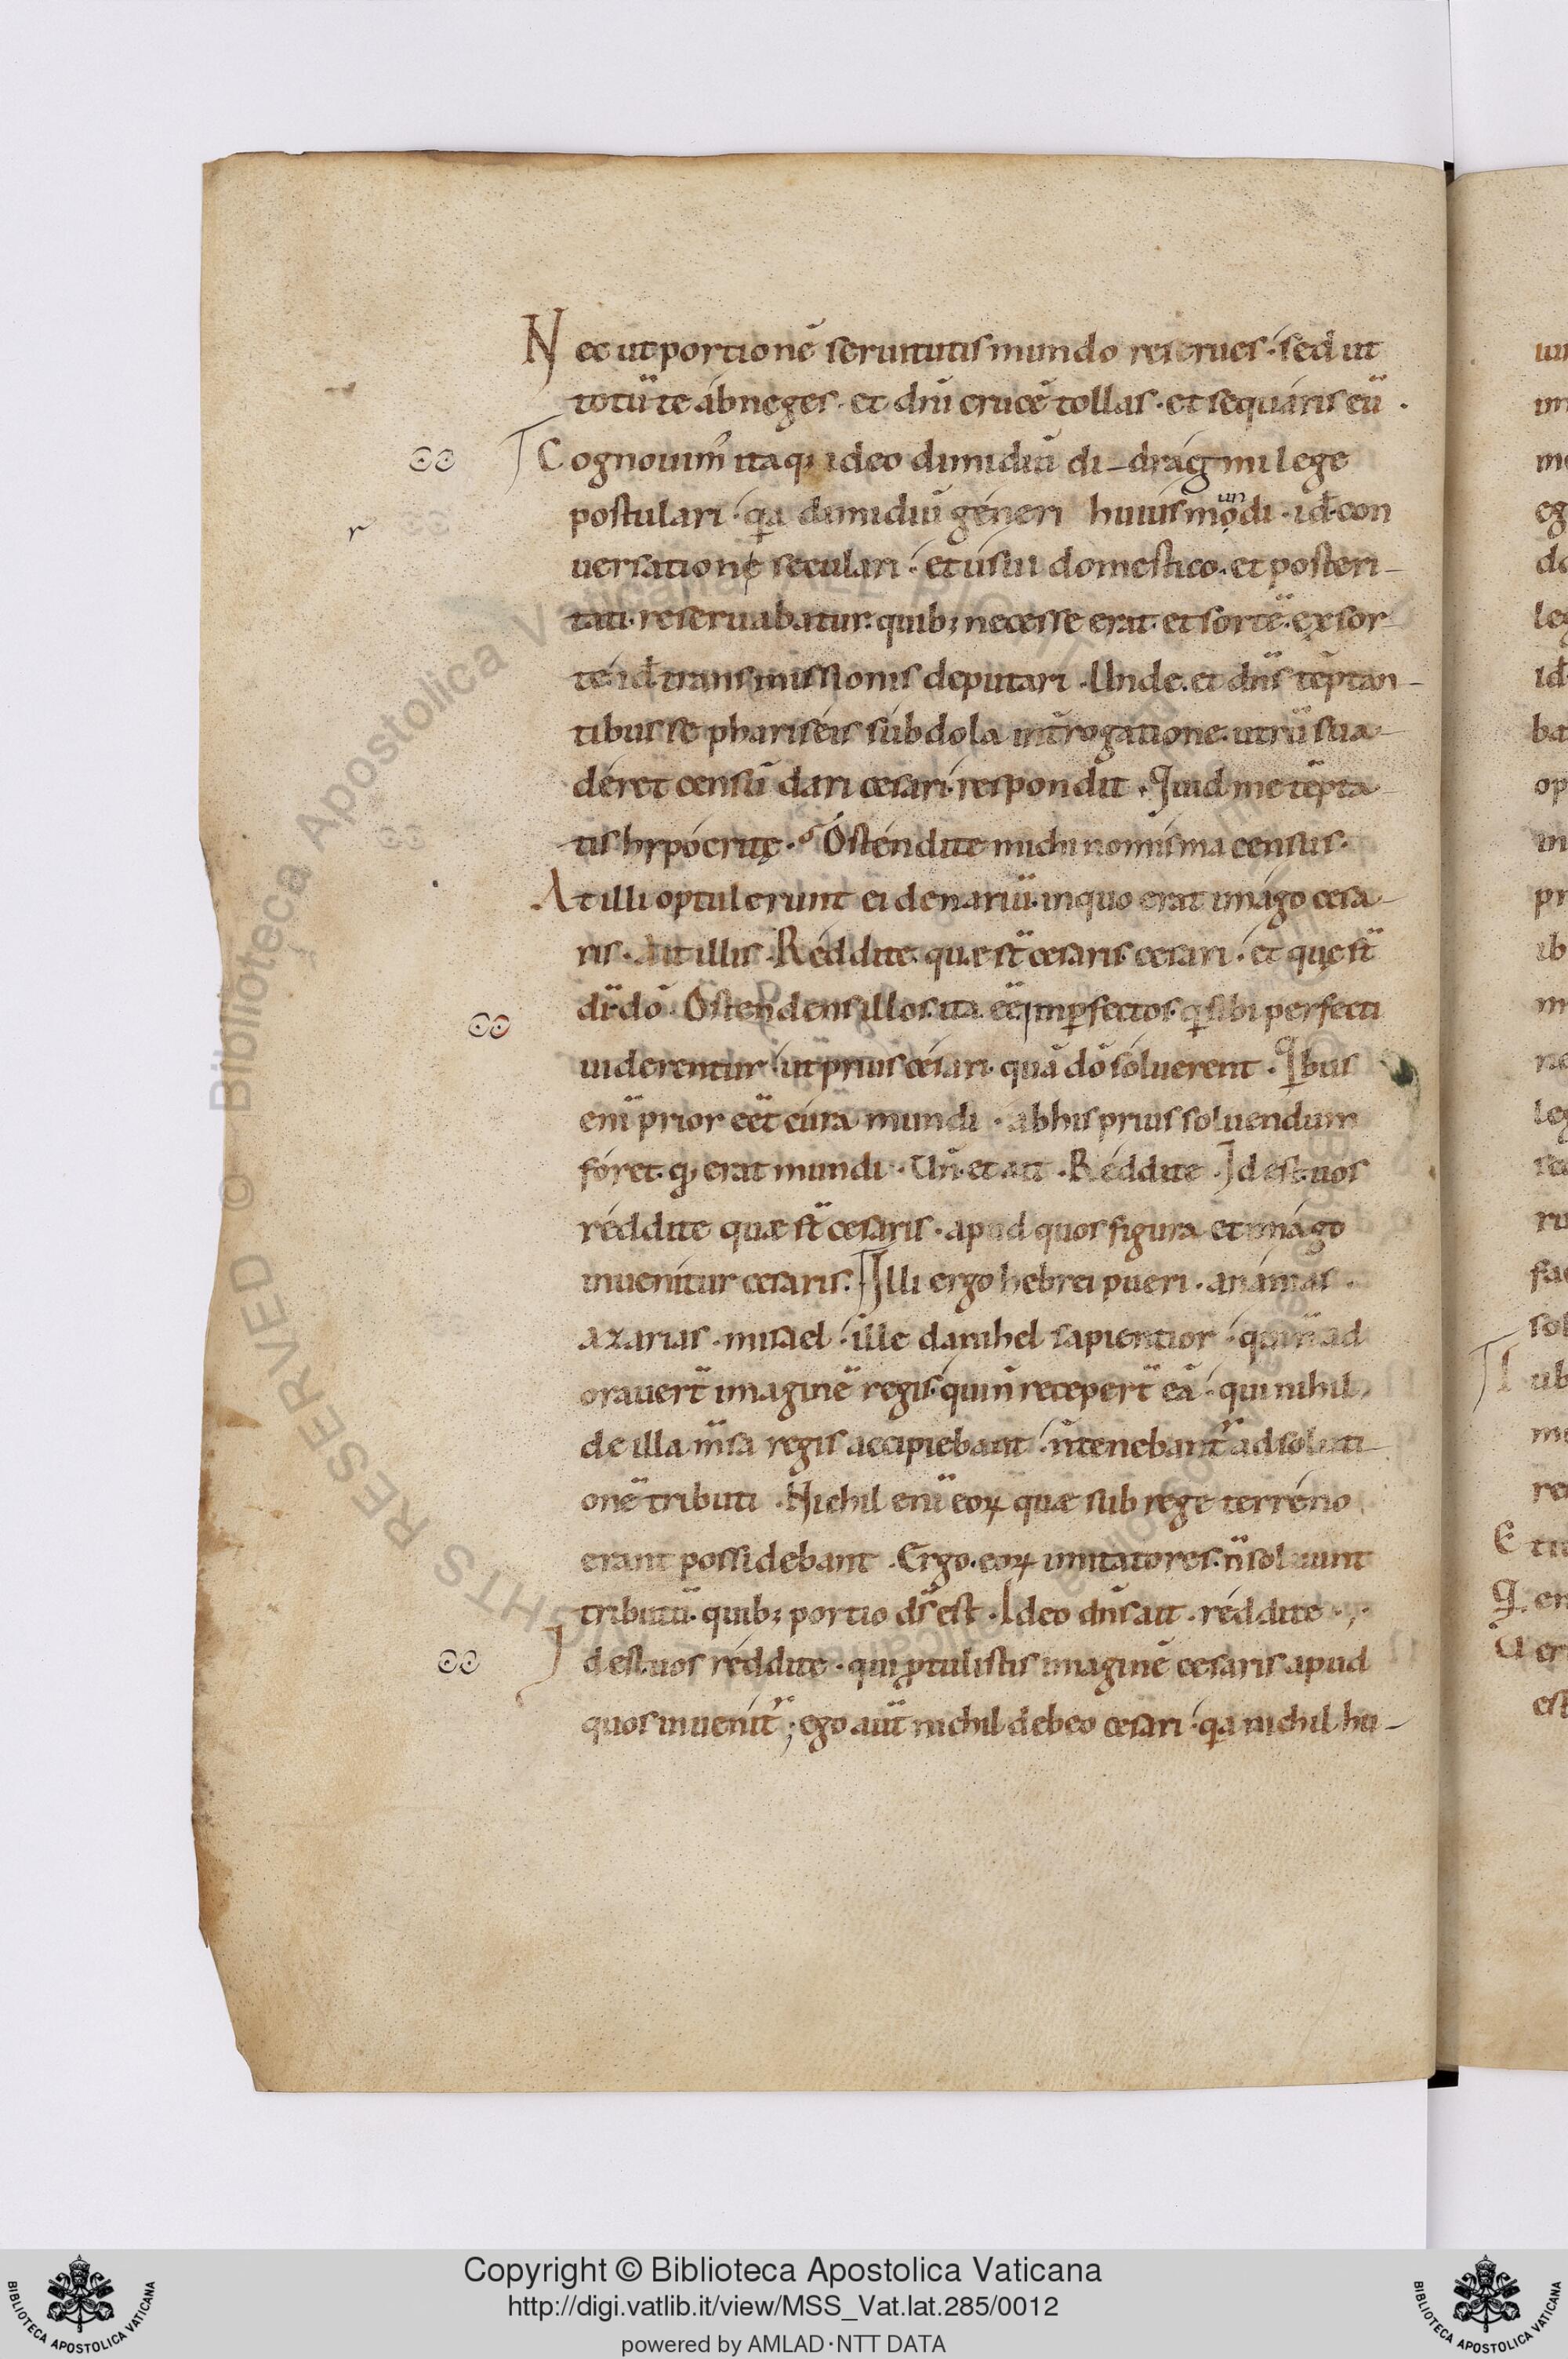 Nec ut portionē seruitutis mundo reserues · sed ut
totū te abneges · et dn̄i crucē tollas · et sequaris eū ·
Cognouim᷒ itaq; ideo dimidiū di-dragmi lege
postulari · qa dimidiū generi huiusmodi · id con
uersatione seculari · et usui domestico · et posteri-
tati · reseruabatur · quib; necesse erat · et sortē · exsor-
te id transmissionis deputari · Unde · et dn̄s tēptan-
tibus se phariseis subdola int̄rogatione · utrū sua-
deret censū dari cesari · respondit · Quid me tēpta-
tis hypocritę · Ostendite michi nomisma census ·
At illi optulerunt ei denariū · in quo erat imago cesa-
ris · Ait illis · Reddite quæ st̄ cesaris cesari · et quę st̄
di do · Ostendens illos · ita eē imp̄fectos · q sibi perfecti
uiderentur · ut prius cesari · quā dō soluerent · Qbus
enī prior eēt cura mundi · ab his prius soluendum
foret · q erat mundi · Un̄ · et ait · Reddite · Id est · uos
reddite quæ st̄ cesaris · apud quos figura et imago
inuenitur cesaris · Illi ergo hebrei pueri · ananias ·
azarias · misael · ille danihel sapientior · qui n̄ ad
orauert̄ imaginē regis · qui n̄ recepert̄ eā · qui nihil
de illa m̄sa regis accipiebant · n̄ tenebant᷒ ad soluti
onē tributi · Nichil enī eoꝝ quæ sub rege terreno
erant possidebant · Ergo · eoꝝ imitatores · n̄ soluunt
tributū · quib; portio ds̄ est · Ideo dn̄s ait · reddite ·
Id est · uos reddite · qui ꝓtulistis imaginē cesaris apud
quos inuenit᷒; ego aūt nichil debeo cesari · qa nichil hu-
un
r
Copyright © Biblioteca Apostolica Vaticana
http://digi.vatlib.it/view/MSS_Vat.lat.285/0012
powered by AMLAD·NTT DATA
BIBLIOTECA APOSTOLICA VATICANA
BIBLIOTECA APOSTOLICA VATICANA
© Biblioteca Apostolica Vaticana ALL RIGHTS RESERVED